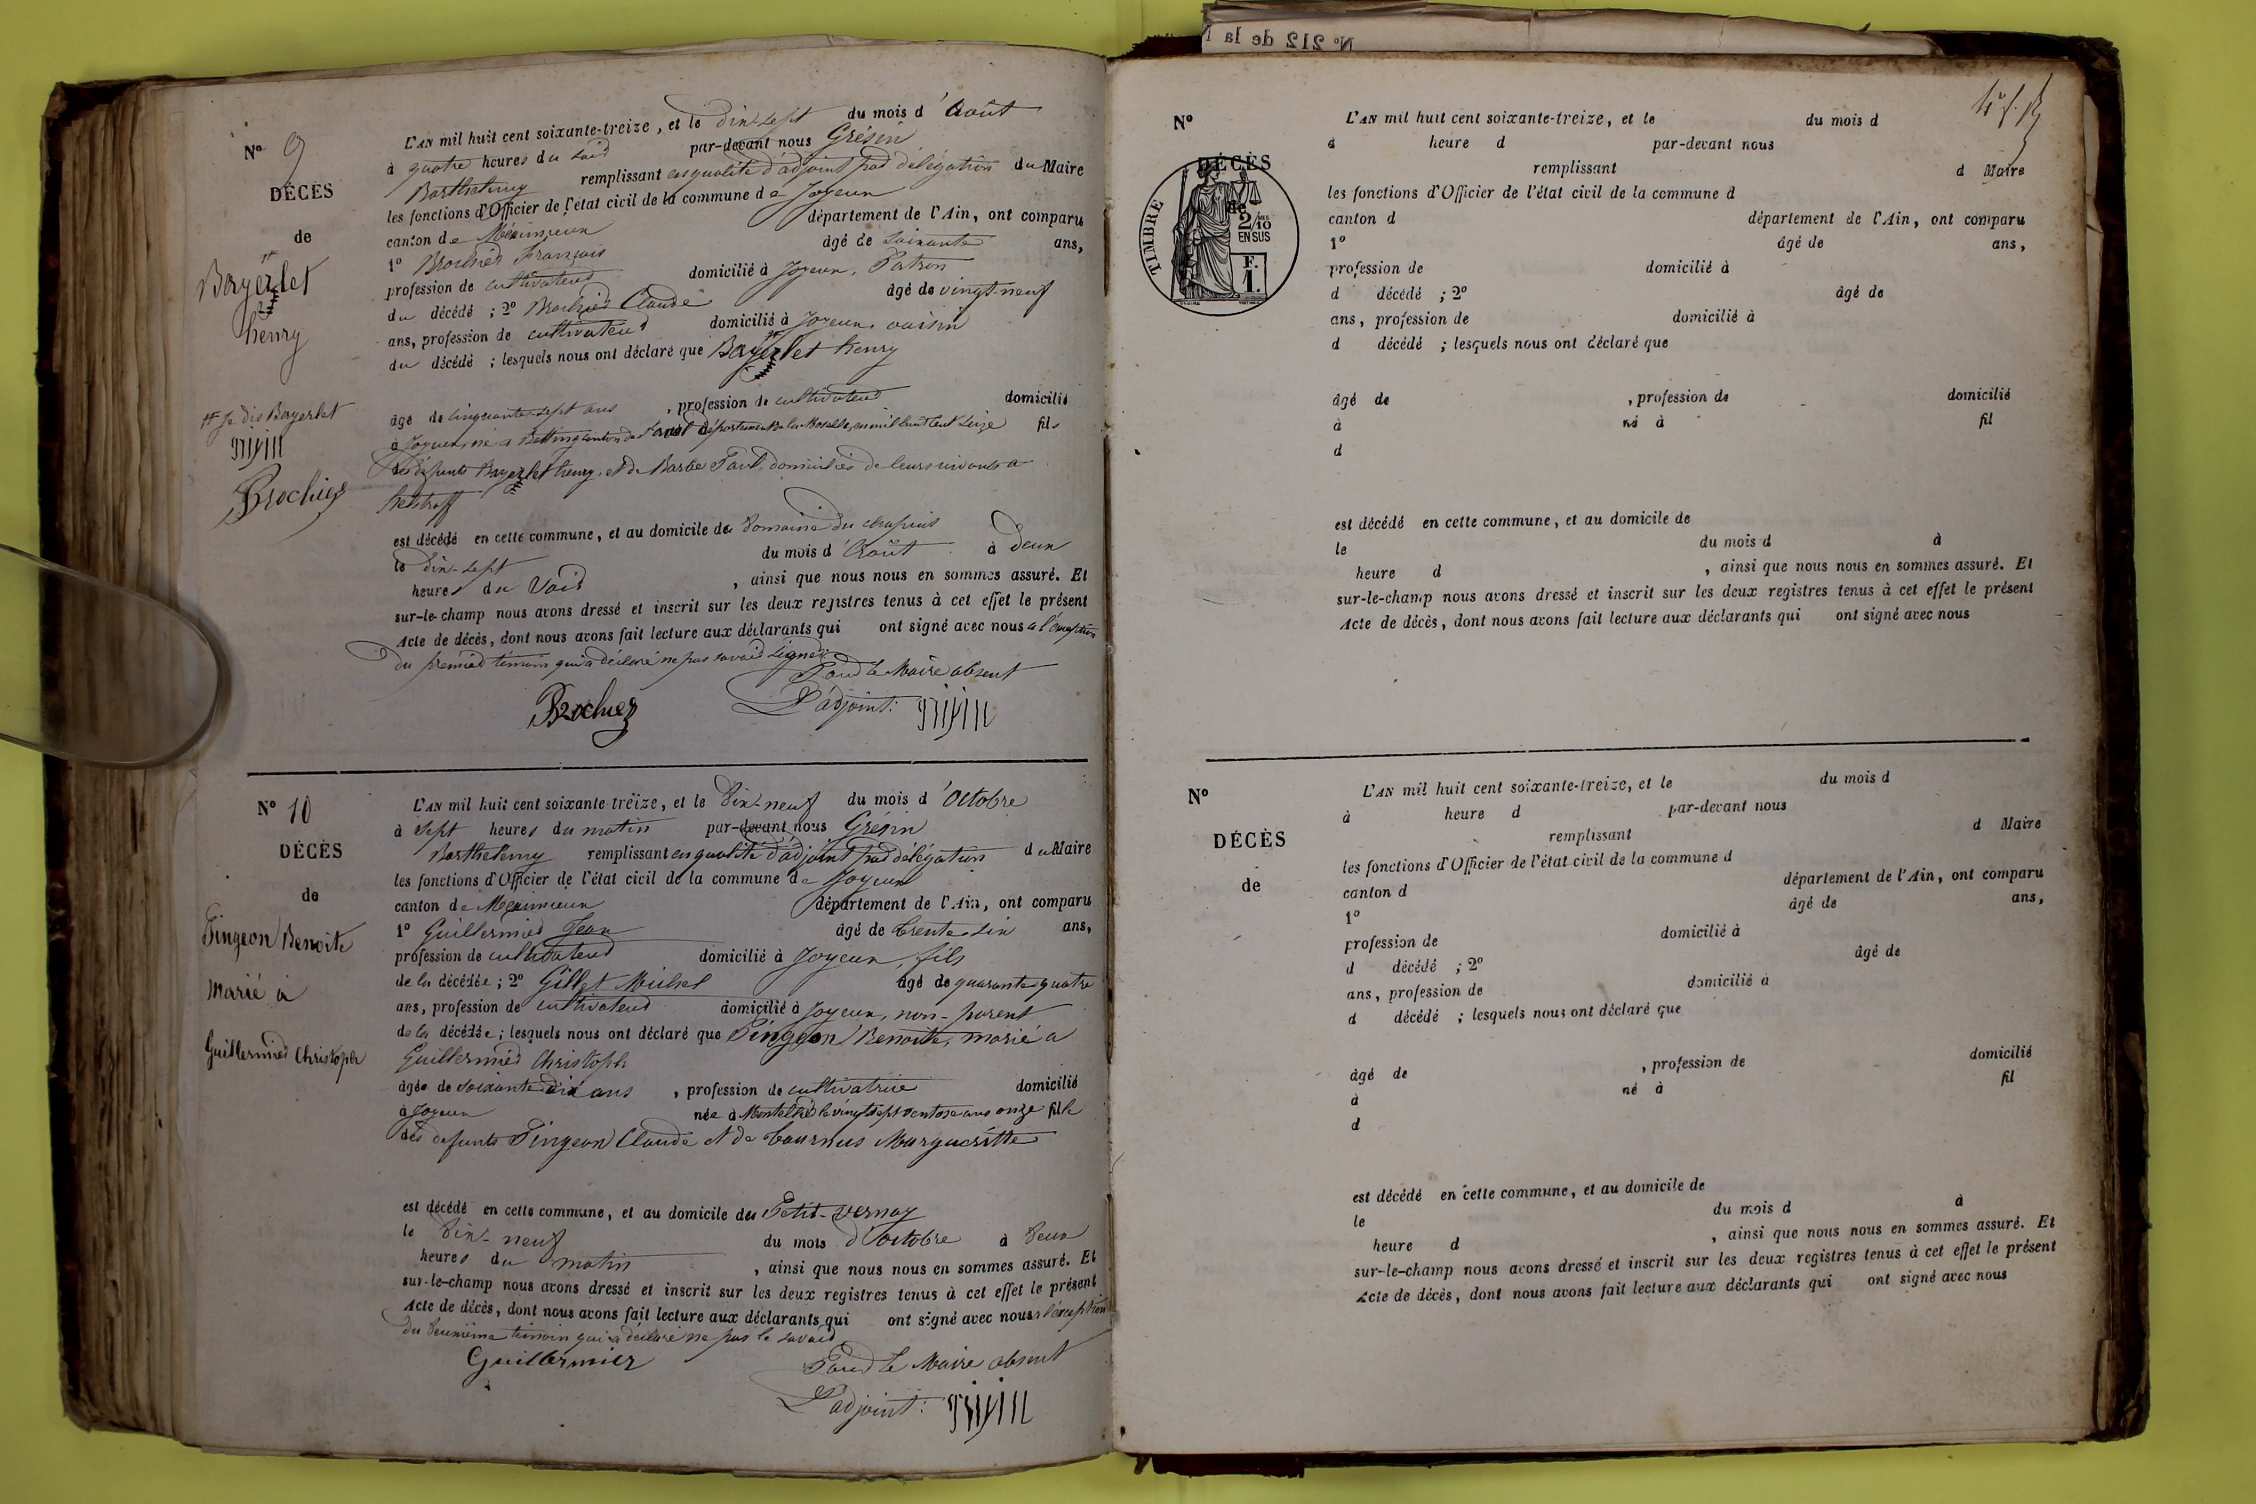 N° 9
DÉCÈS
de
Bayerlet
henry
Je dis Bayerlet
Brochier
L'AN mil huit cent soixante-treize, et le dix-sept du mois d'Août
à quatre heures du soir par-devant nous Grésin
Barthelemy remplissant en qualité d'adjoint par délégation du Maire
les fonctions d'Officier de l'état civil de la commune de Joyeux
canton de Méximieux département de l'Ain, ont comparu
1° Brochier François âgé de soixante ans,
profession de cultivateur domicilié à Joyeux, Patron
du décédé ; 2° Brochier Claude âgé de vingt-neuf
ans, profession de cultivateur domicilié à Joyeux, voisin
du décédé ; lesquels nous ont déclaré que Bayerlet henry
âgé de cinquante-sept ans, profession de cultivateur domicilié
à Joyeux, né à Betting canton de département de la Moselle, en mil huit cent seize fils
des défunts Bayerlet henry, et de Barbe Paul, domiciliés de leurs vivants a
helstroff
est décédé en cette commune, et au domicile du Domaine du chapuis
le dix-sept du mois d'Août à deux
heures du soir, ainsi que nous nous en sommes assuré. Et
sur-le-champ nous avons dressé et inscrit sur les deux registres tenus à cet effet le présent
Acte de décès, dont nous avons fait lecture aux déclarants qui ont signé avec nous a l'exception
du premier témoin qui a déclaré ne pas savoir signer.
Pour le Maire absent
Brochier L'adjoint:
N° 10
DÉCÈS
de
Pingeon Benoite
marié à
Guillermier Christophe
L'AN mil huit cent soixante treize, et le dix-neuf du mois d'Octobre
à sept heures du matin par-devant nous Grésin
Barthelemy remplissant en qualité d'adjoint par délégation du Maire
les fonctions d'Officier de l'état civil de la commune de Joyeux
canton de Meximieux département de l'Ain, ont comparu
1° Guillermier Jean âgé de trente six ans,
profession de cultivateur domicilié à Joyeux, fils
de la décédée ; 2° Gillet Michel âgé de quarante quatre
ans, profession de cultivateur domicilié à Joyeux, non-parent
de la décédée ; lesquels nous ont déclaré que Pingeon Benoite, marié a
Guillermier Christophe
âgée de soixante dix ans, profession de cultivatrice domicilié
à Joyeux née à Montellier le vingt sept ventose ans onze fille
des defunts Pingeon Claude et de Tournus Marguerite
est décédé en cette commune, et au domicile du Petit-Vernay
le dix-neuf du mois d'octobre à deux
heures du matin, ainsi que nous nous en sommes assuré. Et
sur-le-champ nous avons dressé et inscrit sur les deux registres tenus à cet effet le présent
Acte de décès, dont nous avons fait lecture aux déclarants qui ont signé avec nous a l'exception
du deuxième témoin qui a déclaré ne pas le savoir
Guillermier Pour le Maire absent
L'adjoint:
N° 212 de la
N°
DÉCÈS
de
TIMBRE
2/10
EN SUS
F.
1.
L'AN mil huit cent soixante-treize, et le du mois d
à heure d par-devant nous
remplissant d Maire
les fonctions d'Officier de l'état civil de la commune d
canton d département de l'Ain, ont comparu
1° âgé de ans,
profession de domicilié à
d décédé ; 2° âgé de
ans, profession de domicilié à
d décédé ; lesquels nous ont déclaré que
âgé de , profession de domicilié
à né à fil
d
est décédé en cette commune, et au domicile de
le du mois d à
heure d , ainsi que nous nous en sommes assuré. Et
sur-le-champ nous avons dressé et inscrit sur les deux registres tenus à cet effet le présent
Acte de décès, dont nous avons fait lecture aux déclarants qui ont signé avec nous
N°
DÉCÈS
de
L'AN mil huit cent soixante-treize, et le du mois d
à heure d par-devant nous
remplissant d Maire
les fonctions d'Officier de l'état civil de la commune d
canton d département de l'Ain, ont comparu
1° âgé de ans,
profession de domicilié à
d décédé ; 2° âgé de
ans, profession de domicilié à
d décédé ; lesquels nous ont déclaré que
âgé de , profession de domicilié
à né à fil
d
est décédé en cette commune, et au domicile de
le du mois d à
heure d , ainsi que nous nous en sommes assuré. Et
sur-le-champ nous avons dressé et inscrit sur les deux registres tenus à cet effet le présent
Acte de décès, dont nous avons fait lecture aux déclarants qui ont signé avec nous